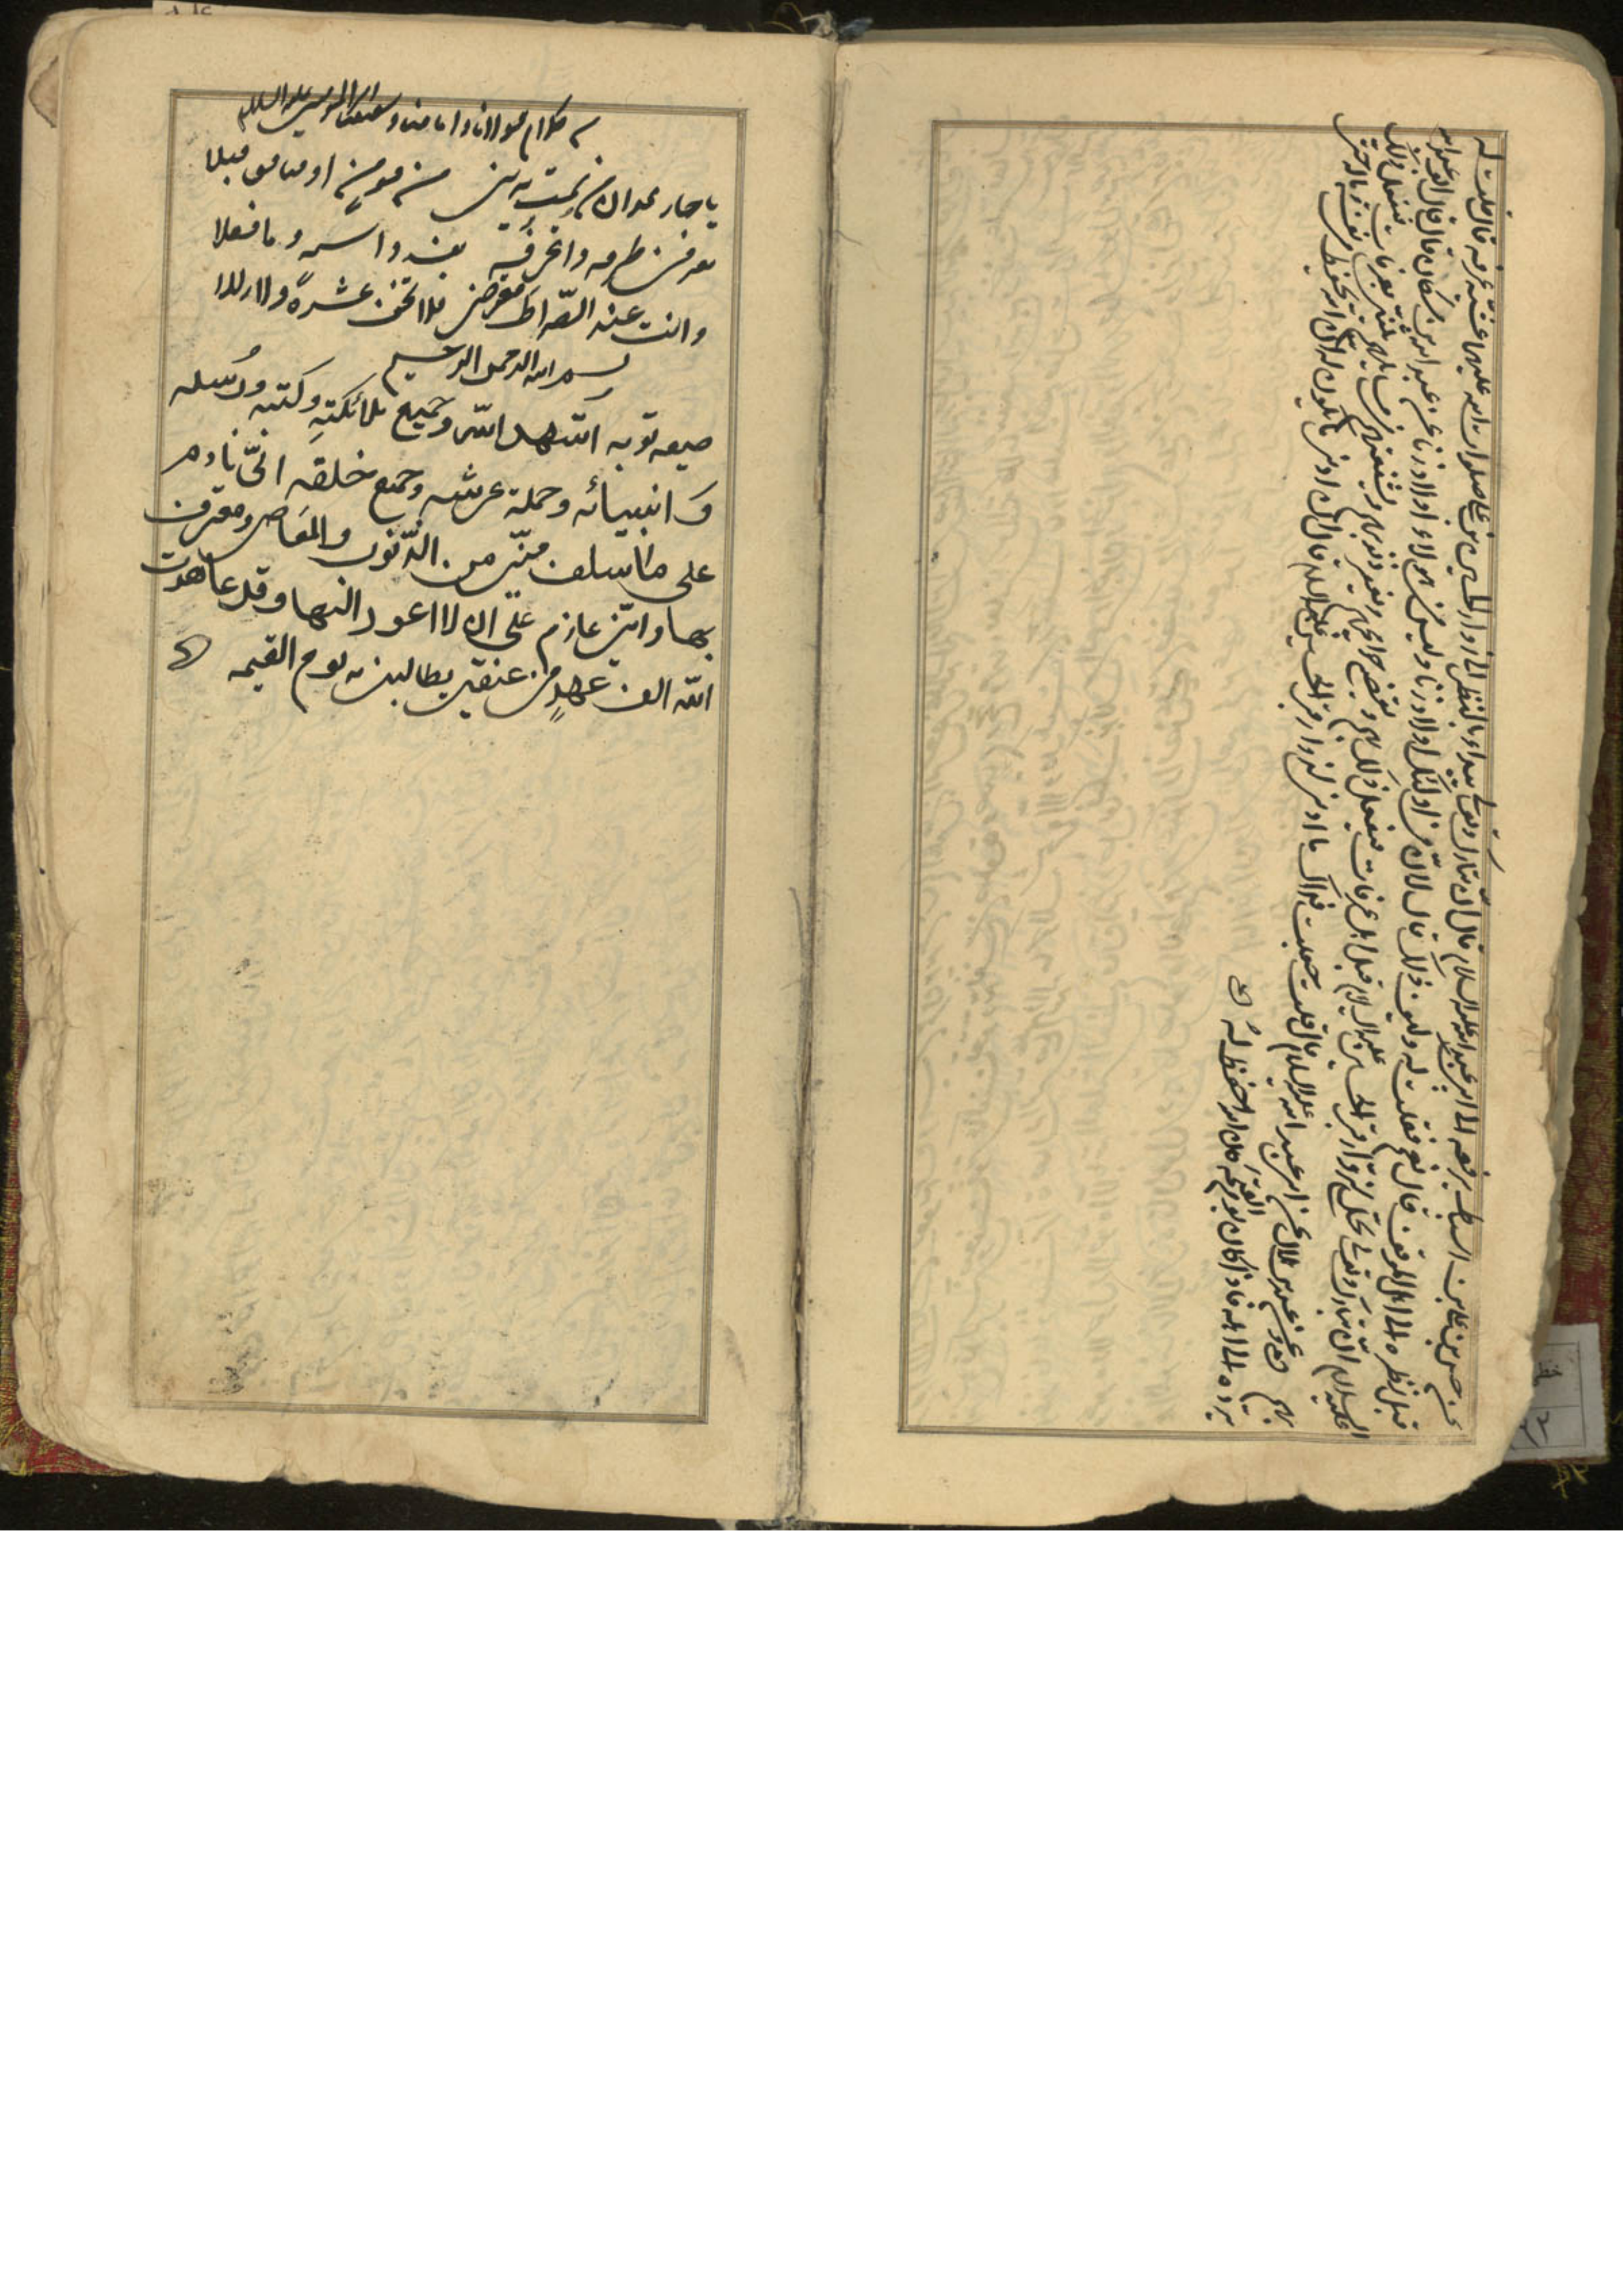 عن حسن بن علي بن اسباط يرفعه الى ابي عبد الله عليه السلام قال انّ الله تبارك وتعالى يبداء بالنظر الى زوار الحسين بن علي صلوات الله عليهما عشيّة عرفة قال قلت له
قبل نظره الى اهل الموقف قال نعم فقلت له وكيف ذلك قال لانّ في اولئك اولاد زنا وليس في هولاء اولاد زنا عن عبد الله بن مسكان قال قال ابو عبد الله
عليه السلام انّ الله تبارك وتعالى يتجلى لزوار قبر الحسين عليه السلام قبل اهل عرفات فيفعل ذلك بهم ويقضي حوايجهم ويغفر ذنوبهم ويشفعهم في مسايلهم ثم يثني باهل عرفات فيفعل ذلك
بهم عن عبد الله بن هلال عن ابي عبد الله عليه السلام قال قلت جعلت فداك ما ادنى ما لزوار قبر الحسين عليه السلام فقال لي ان ادنى ما يكون له ان الله يحفظه في نفسه وماله حتى
يرده الى اهله فاذا كان يوم القيمة كان الله احفظ له
من كلام مولانا وامامنا امير المؤمنين عليه السلام
يا حار همدان من يمت يرني من مومن او منافق قبلا
يعرفني طرفه واعرفه بعينه واسمه وما فعلا
وانت عند الصّراط معترضي فلا تخف عثرة ولا زللا
بسم الله الرحمن الرحيم
صيغه توبه اشهد الله وجميع ملائكته وكتبه ورسله
وانبيائه وحملة عرشه وجميع خلقه انّي نادم
على ما سلف منّي من الذّنوب والمعاصي ومعترف
بها وانّي عازم على ان لا اعود اليها وقد عاهدت
الله الف عهد في عنقي يطالبني به يوم القيمه